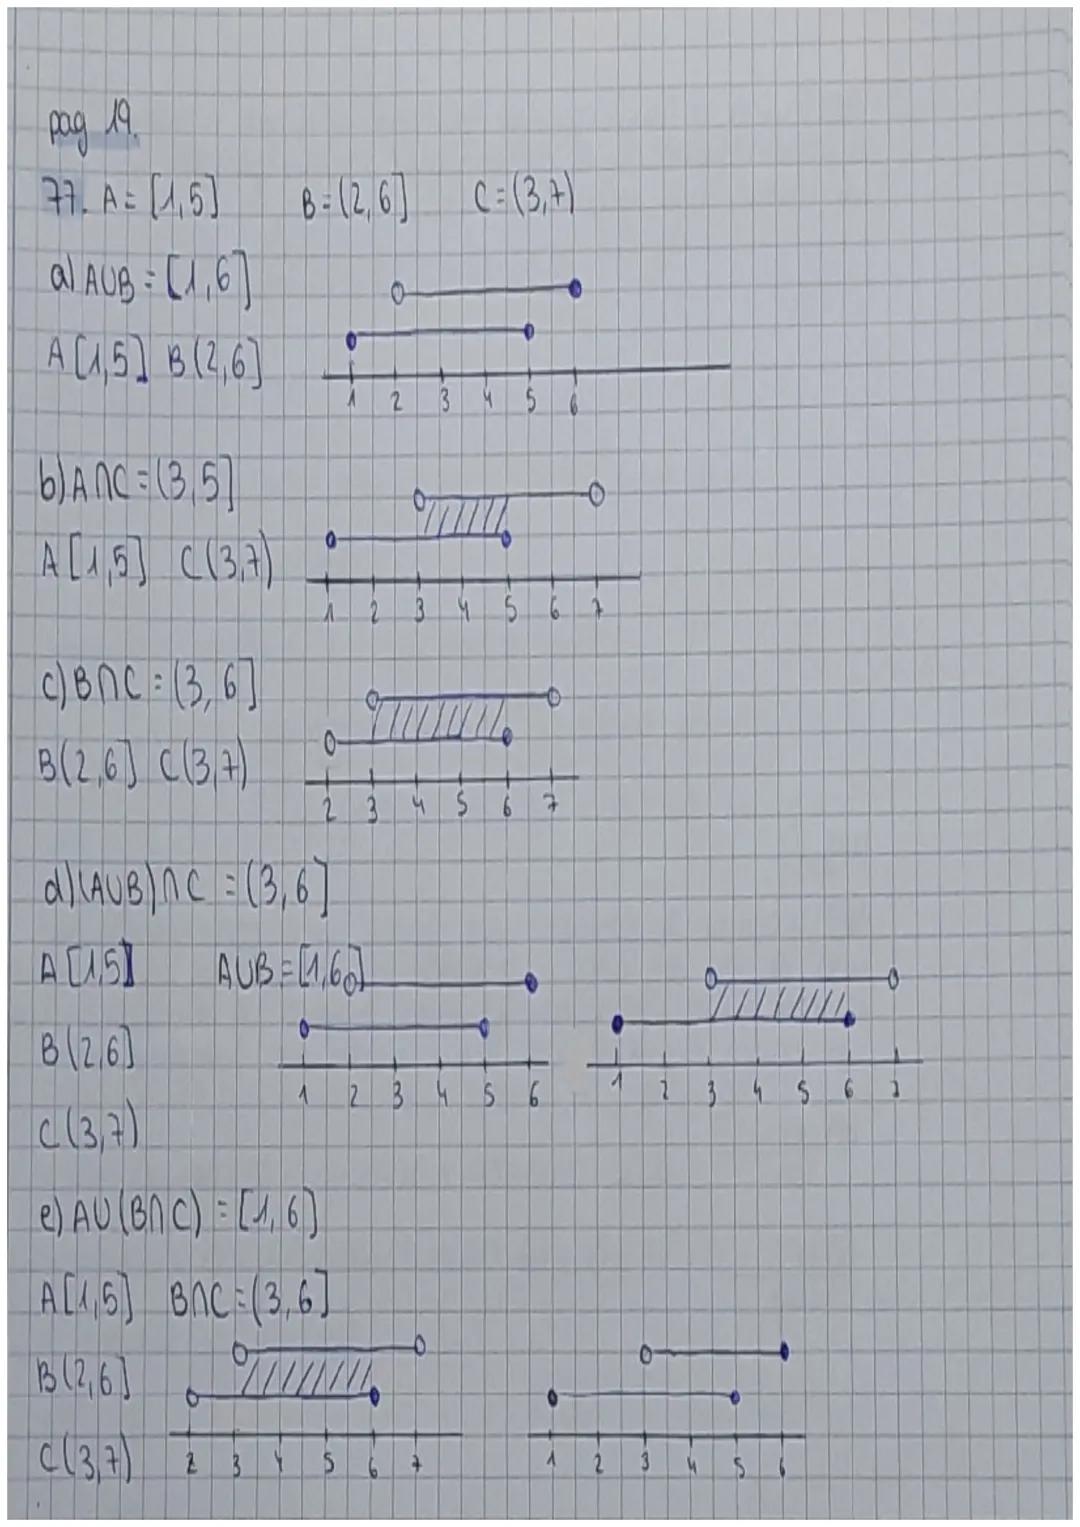 pag 19.
77. A= [1,5] B=(2,6] C=(3,7)
a) A∪B = [1,6]
A[1,5] B(2,6]
1 2 3 4 5 6
b) A∩C = (3,5]
A [1,5] C(3,7)
1 2 3 4 5 6 7
c) B∩C = (3,6]
B(2,6] C(3,7)
2 3 4 5 6 7
d) (A∪B)∩C = (3,6]
A [1,5] A∪B = [1,6]
B (2,6]
1 2 3 4 5 6 1 2 3 4 5 6 7
C (3,7)
e) A∪(B∩C) = [1,6]
A[1,5] B∩C = (3,6]
B (2,6]
C(3,7) 2 3 4 5 6 7 1 2 3 4 5 6